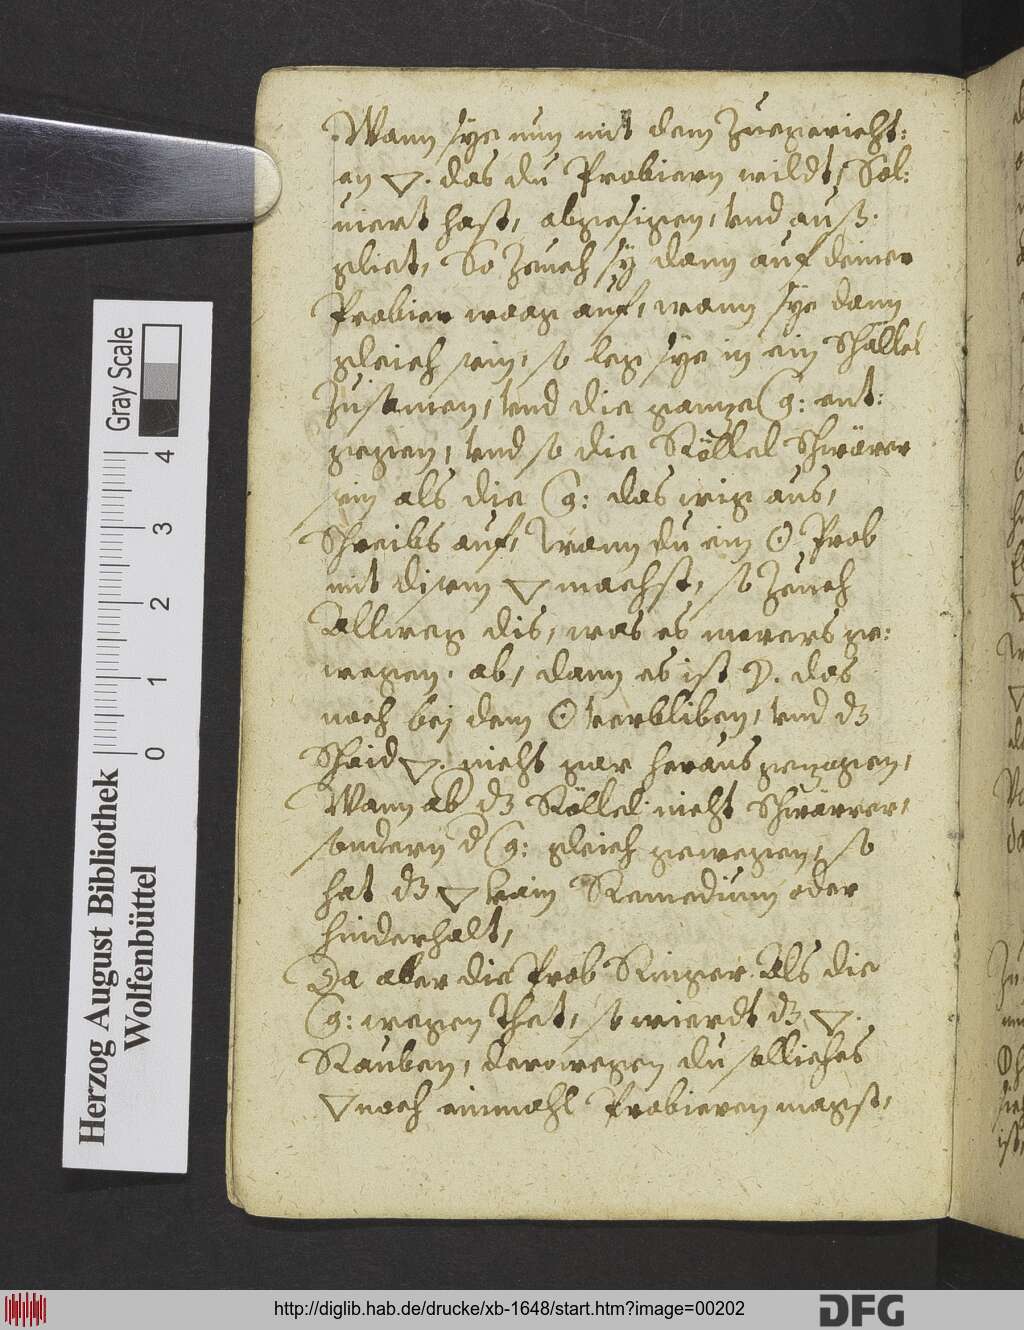 Wann sye nun mit dem Zuegericht:
en ▽. das du Probiern wildt, Sol:
uiert hast, abgesigen, vnd auß
gliet, So Zeuch sÿ dann auf deiner
Probier waag auf, wann sye dann
gleich sein, so leg sye in ein Schällel
Zusamen, vnd die ganze g: ent:
gegen, vnd so die Röllel Schwärer
sein als die g: das wig aus,
Schreibs auf, wann du ein ☉ Prob
mit disem ▽ machst, so Zeuch
Allweg dis, was es merers ge:
wegen, ab, dann es ist ☽. das
noch bej dem ☉ verbliben, vnd dz
Schaid ▽. nicht gar heraus gezogen,
Wann ab dz Röllel nicht Schwärer,
sondern d g: gleich gewegen, so
hat dz ▽ kain Remedium oder
hinderhalt,
Da aber die Prob Ringer Als die
g: wegen thet, so wierdt dz ▽.
Rauben, derowegen du solliches
▽ noch einmahl Probieren magst,
Herzog August Bibliothek
Wolfenbüttel
Gray Scale
0 1 2 3 4
http://diglib.hab.de/drucke/xb-1648/start.htm?image=00202
DFG